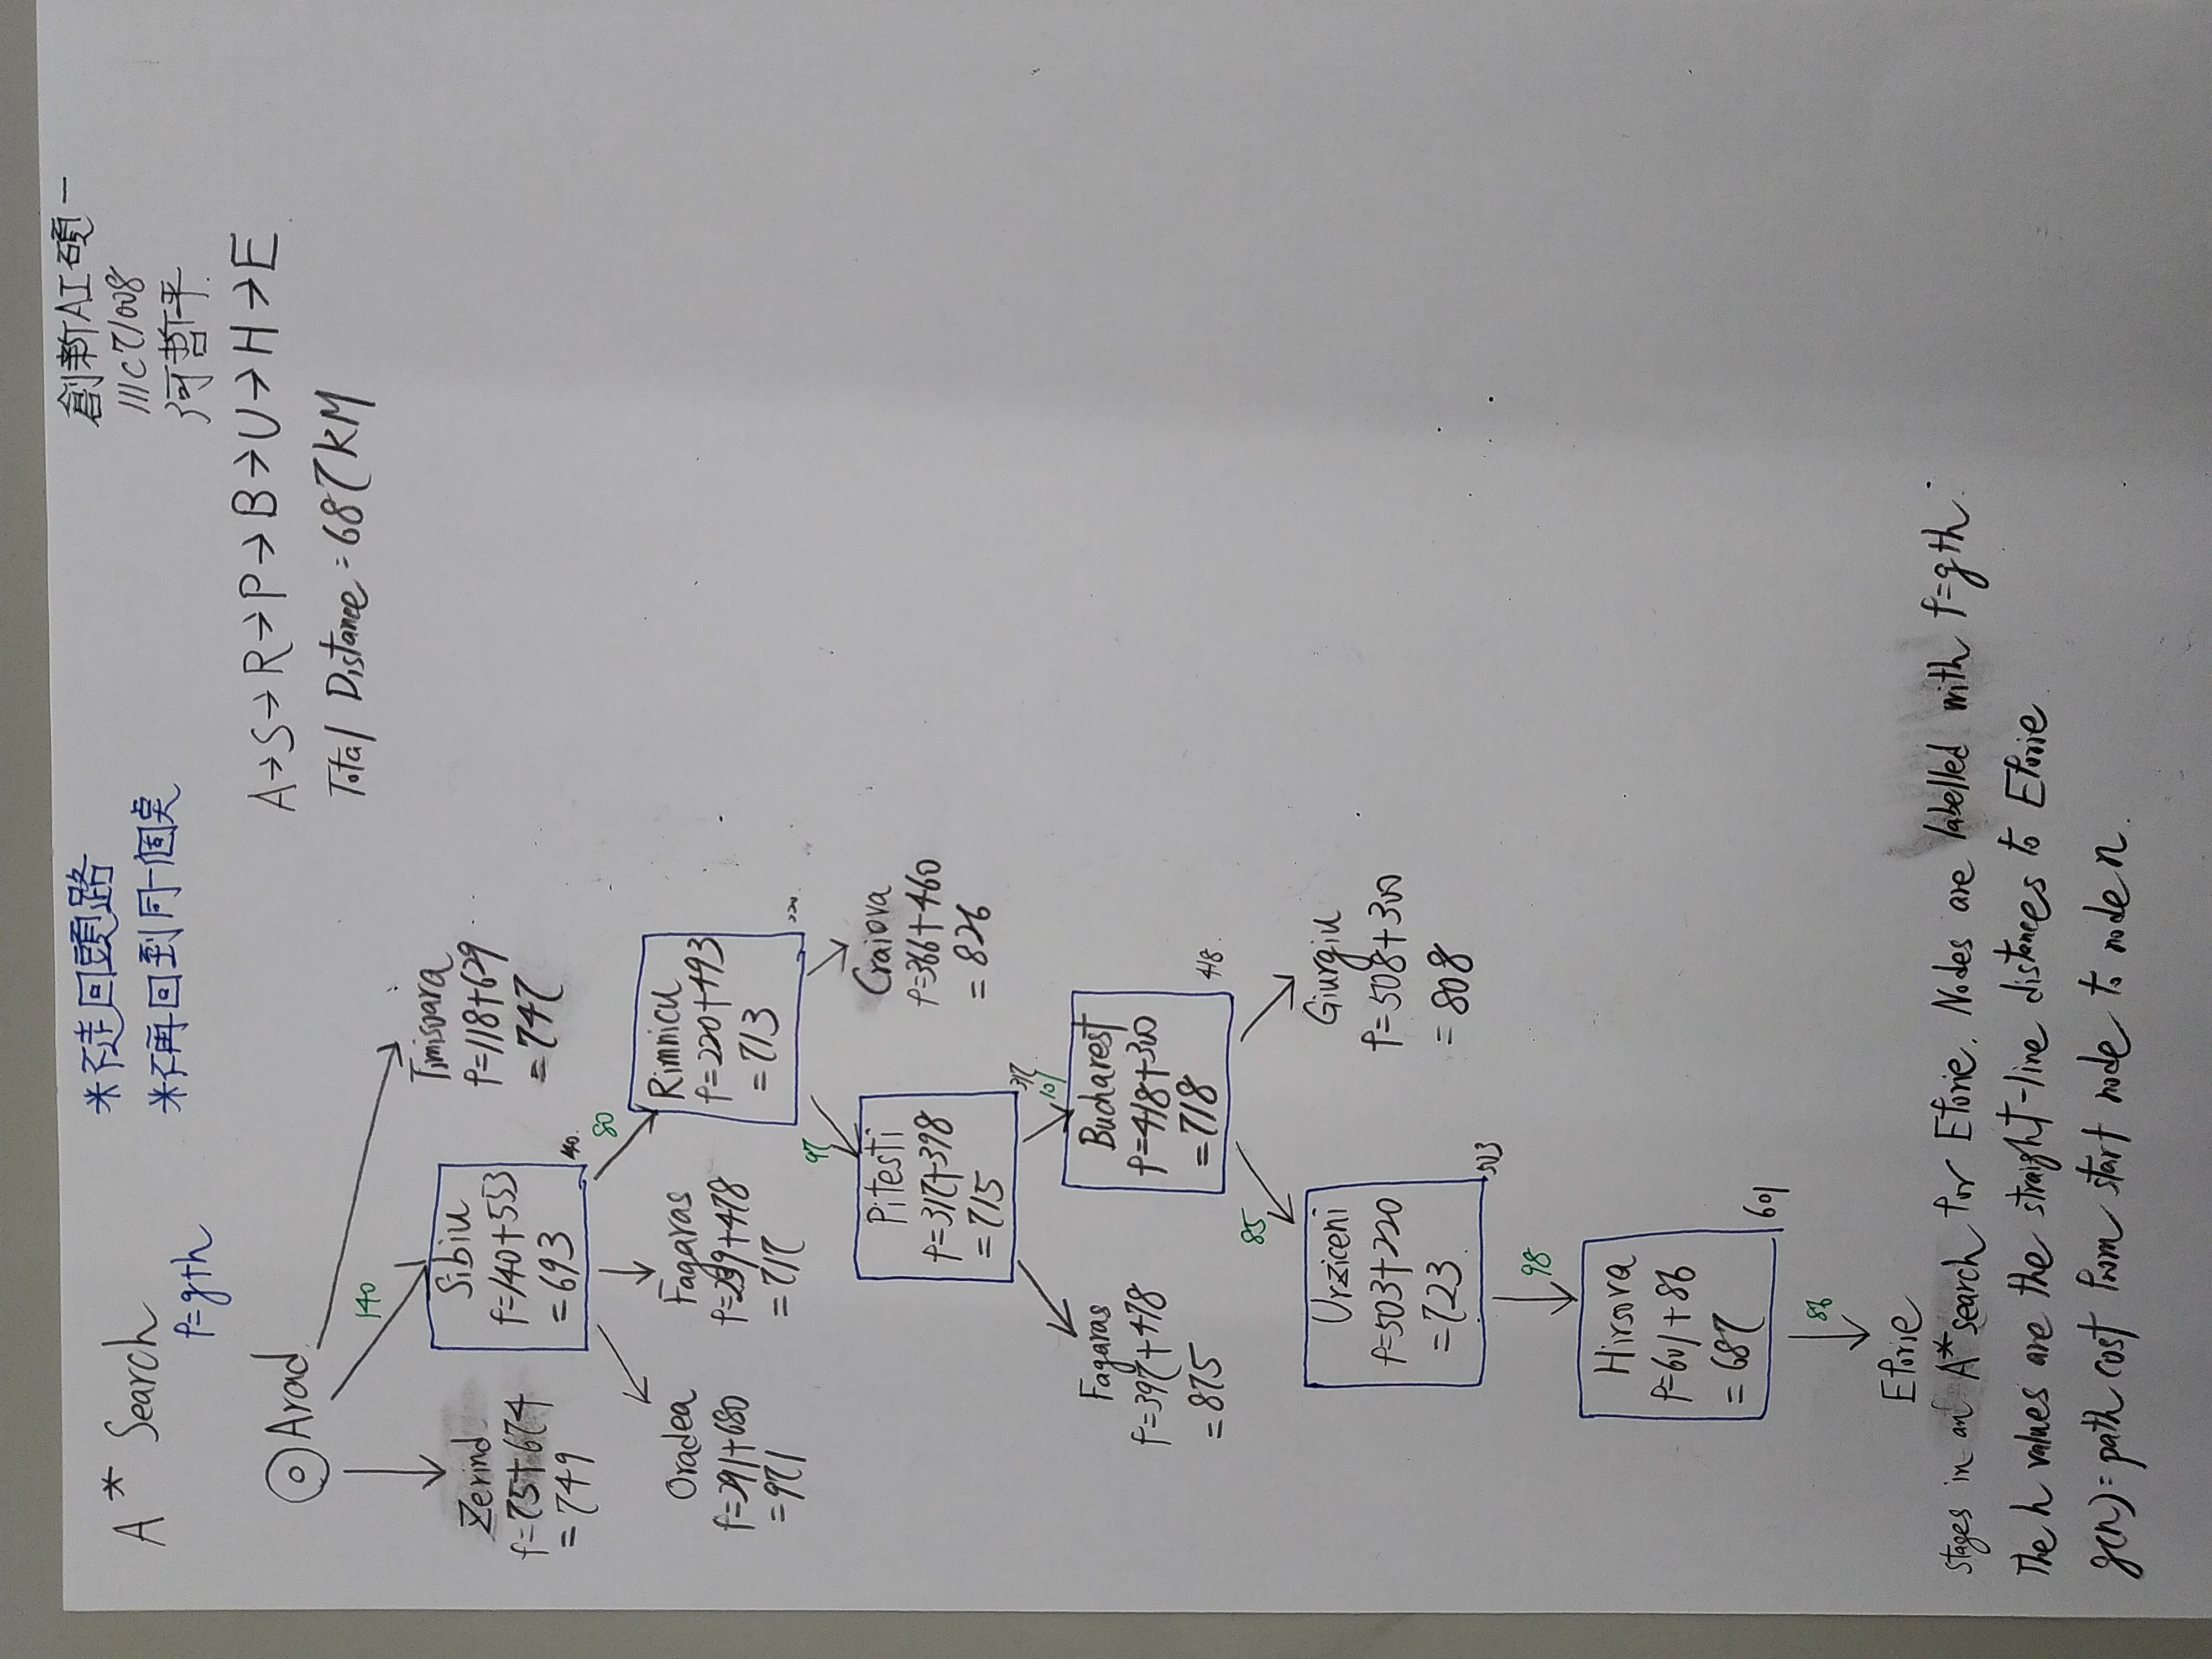 A* Search
f=g+h
*不走回頭路
*不再回到同一個點
創新AI碩一
111C71008
河哲平
A→S→R→P→B→U→H→E
Total Distance=687KM
Arad
140
Zerind
f=75+674
=749
Sibiu
f=140+553
=693
140
Timisoara
f=118+629
=747
80
Oradea
f=291+680
=971
Fagaras
f=239+478
=717
Rimnicu
f=220+493
=713
220
97
Pitesti
f=317+398
=715
317
Craiova
f=366+460
=826
101
Fagaras
f=397+478
=875
Bucharest
f=418+300
=718
418
85
Urziceni
f=503+220
=723
503
Giurgiu
f=508+300
=808
98
Hirsova
f=601+86
=687
601
86
Eforie
Stages in an A* search for Eforie. Nodes are labelled with f=g+h.
The h values are the straight-line distances to Eforie
g(n)=path cost from start node to node n.